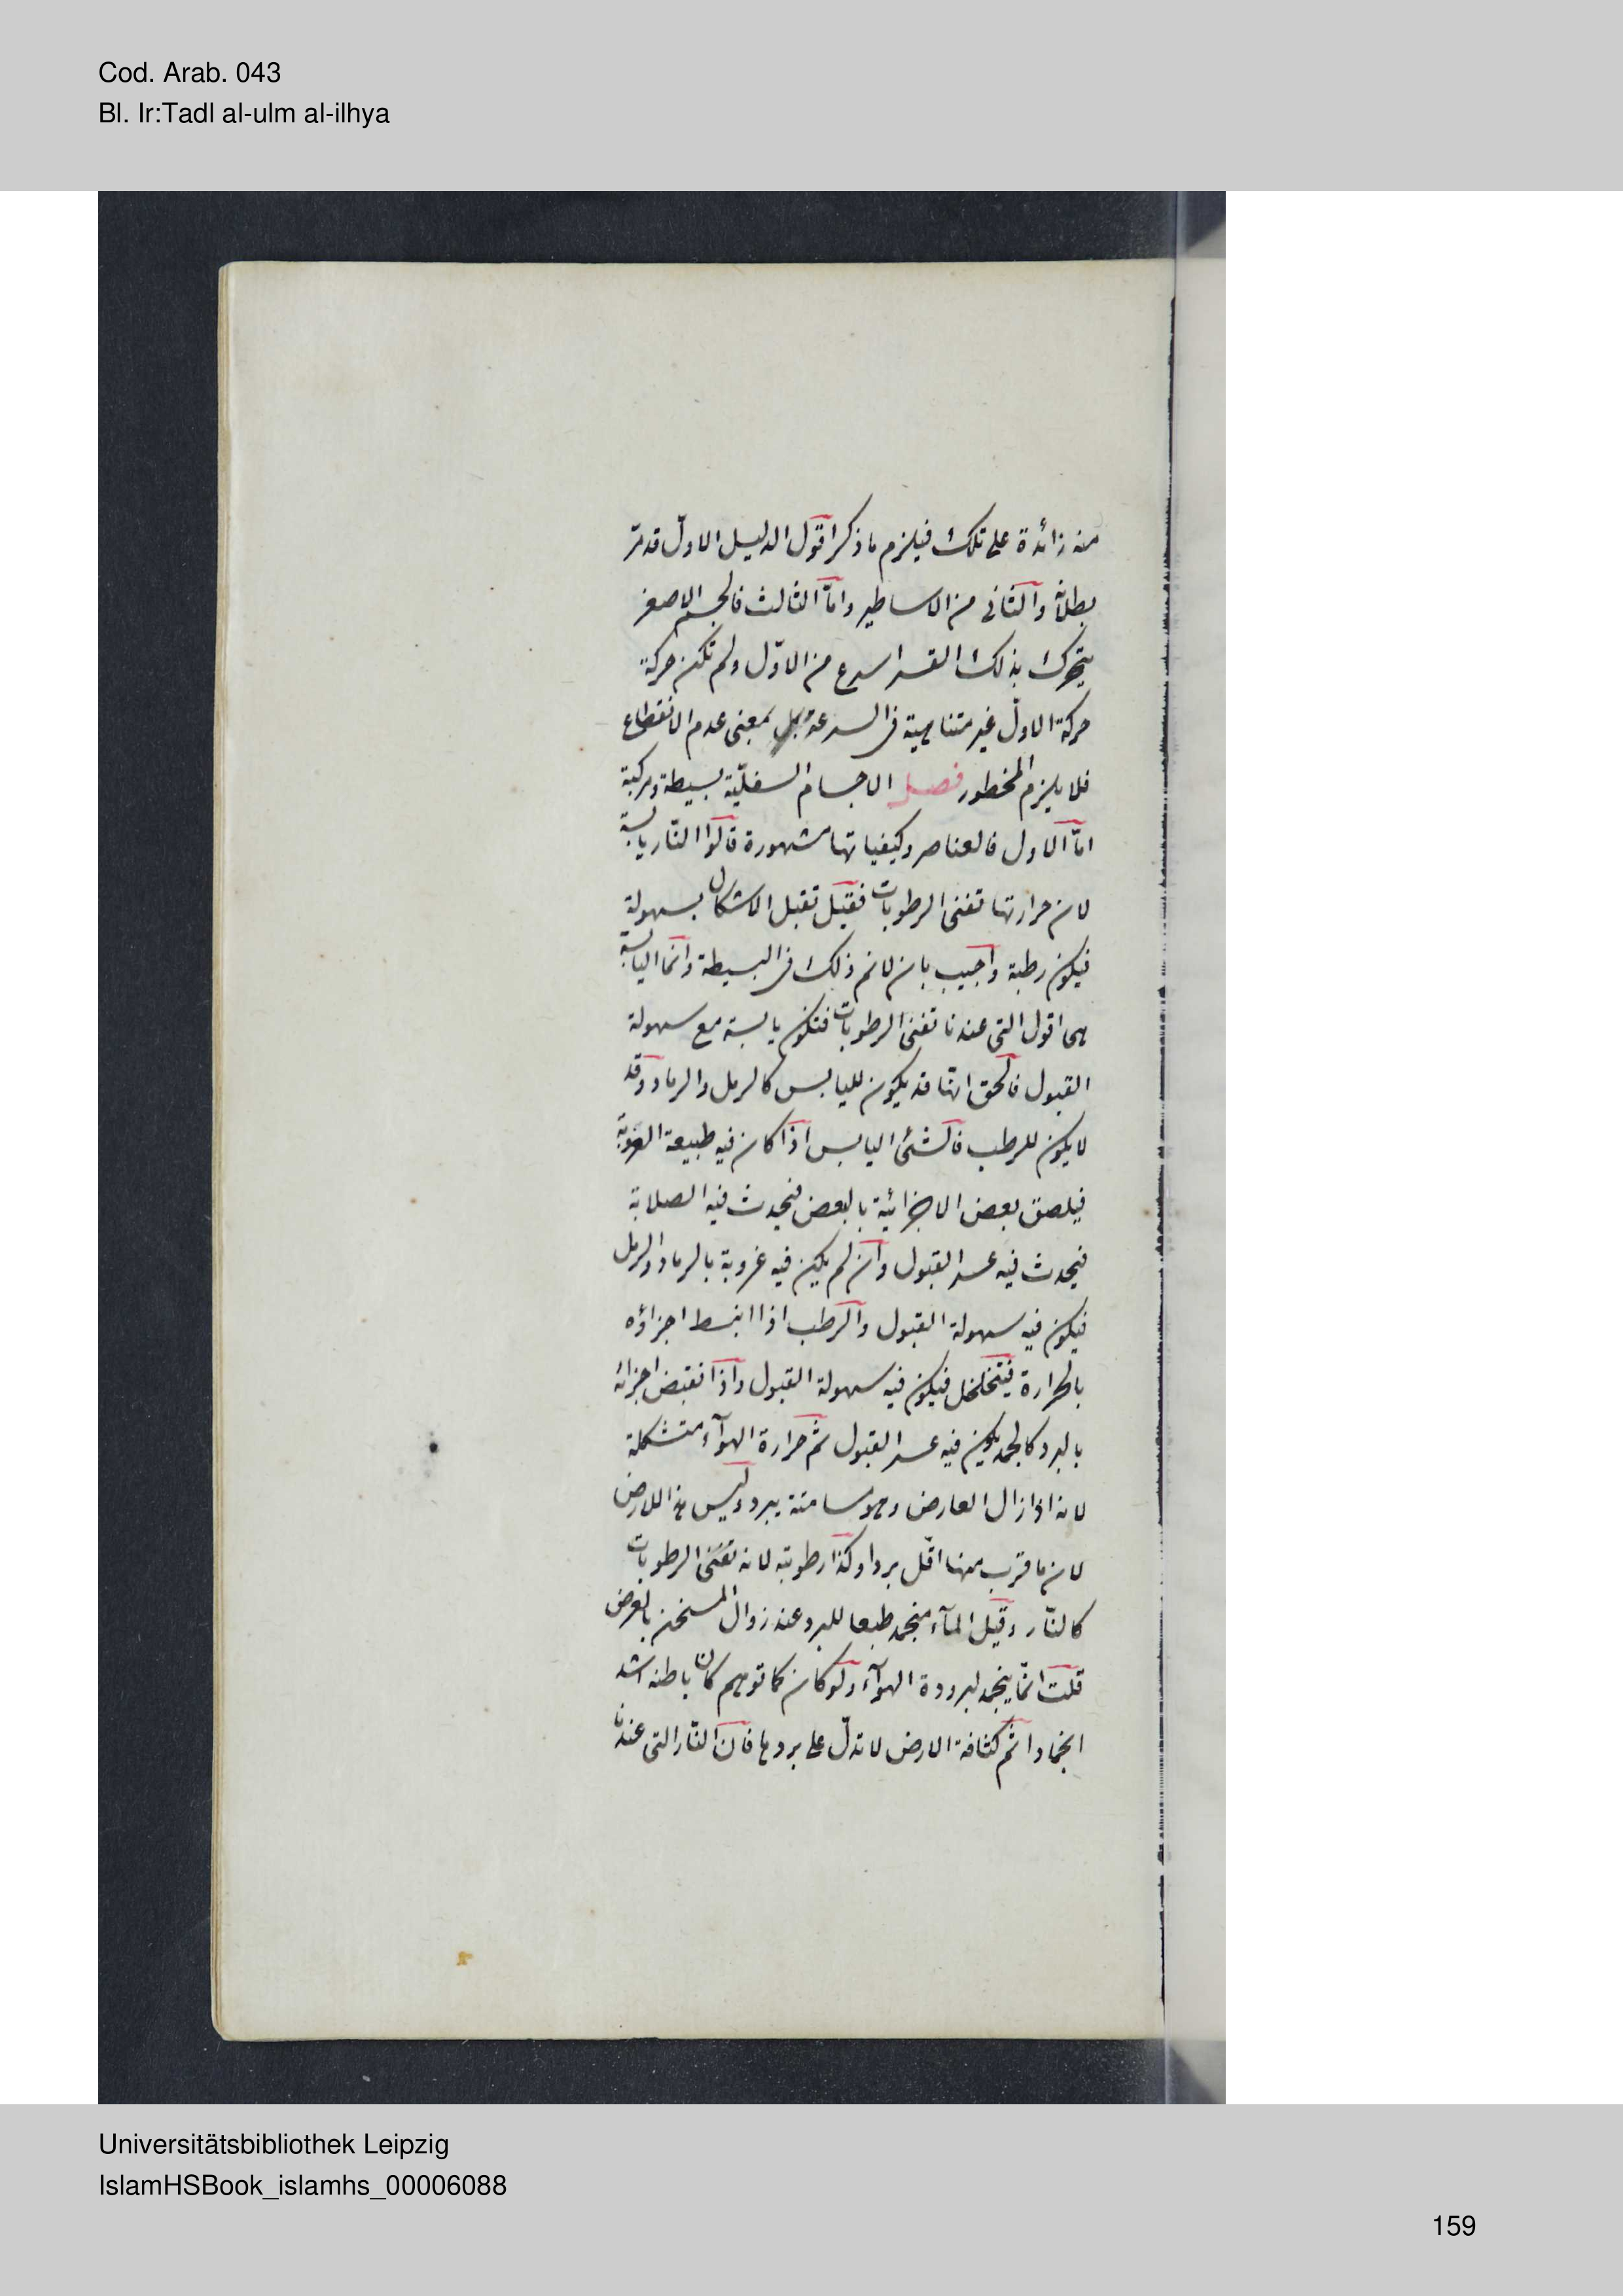 Cod. Arab. 043
Bl. Ir:Tadl al-ulm al-ilhya
منه زائدة على تلك فيلزم ما ذكر اقول الدليل الاول قد مرّ
بطلانه والثانى من الاساطير وامّا الثالث فالجسم الاصغر
يتحرك بذلك القسر اسرع من الاوّل ولم تكن حركة
حركة الاول غير متناهية فى السرعة بل بمعنى عدم الانقطاع
فلا يلزم المخطور فصل الاجسام السفليّة بسيطة ومركبة
امّا الاول فالعناصر وكيفياتها مشهورة قالوا النّار يابسة
لان حرارتها تفنى الرطوبات فقيل تقبل الاشكال بسهولة
فيكون رطبة واجيب بان لانم ذلك فى البسيطة وانما اليابسة
هى اقول التى عندنا تفنى الرطوبات فتكون يابسة مع سهولة
القبول فالحق انّها قد يكون لليابس كالرمل والرماد وقد
لا يكون للرطب فالشئ اليابس اذا كان فيه طبيعة الغروبة
فيلصق بعض الاجزائية بالبعض فيحدث فيه الصلابة
فيحدث فيه عسر القبول وان لم يكن فيه غروبة بالرماد والرمل
فيكون فيه سهولة القبول والرطب اذا انبسط اجزاؤه
بالحرارة فيتخلخل فيكون فيه سهولة القبول واذا نقبض اجزائه
بالبرد كالجمد يكون فيه عسر القبول ثم حرارة الهوآء متشكلة
لانه اذا زال العارض وهو مسامتة يبرد وليس هذا للارض
لان ما قرب منها اقل بردا وكذا رطوبته لانه تفنى الرطوبات
كالنّار وقيل المآء منجمد طبعا للبرد عند زوال المسخن بالعرض
قلت انّما ينجمد لبرودة الهوآء ولو كان كما توهم كان باطنه اشد
انجمادا ثم كثافة الارض لا تدلّ على بردها فان النّار التى عندنا
Universitätsbibliothek Leipzig
IslamHSBook_islamhs_00006088
159